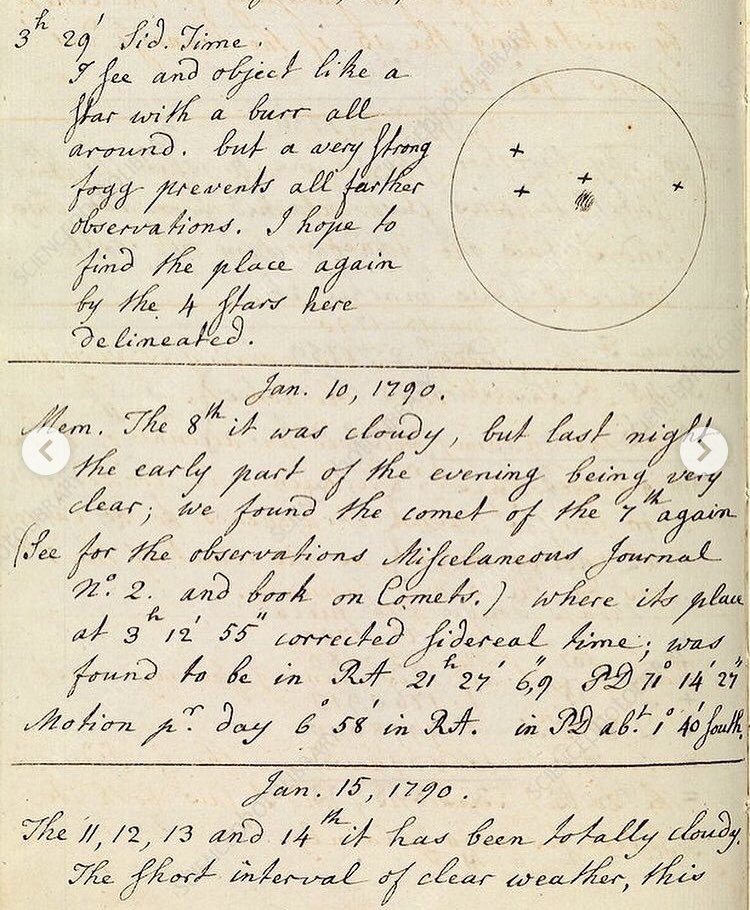 3ʰ 29′ Sid. Time.
I see and object like a
star with a burr all
around. but a very strong
fogg prevents all farther
observations. I hope to
find the place again
by the 4 stars here
delineated.
Jan. 10, 1790.
Mem. The 8ᵗʰ it was cloudy, but last night
the early part of the evening being very
clear; we found the comet of the 7ᵗʰ again
(See for the observations Miscelaneous Journal
Nº. 2. and book on Comets.) where its place
at 3ʰ 12′ 55″ corrected sidereal time; was
found to be in RA 21ʰ 27′ 6″,9 PD 71° 14′ 27″
Motion pʳ. day 6° 58′ in RA. in PD abᵗ. 1° 40′ south.
Jan. 15, 1790.
The 11, 12, 13 and 14ᵗʰ it has been totally cloudy.
The short interval of clear weather, this